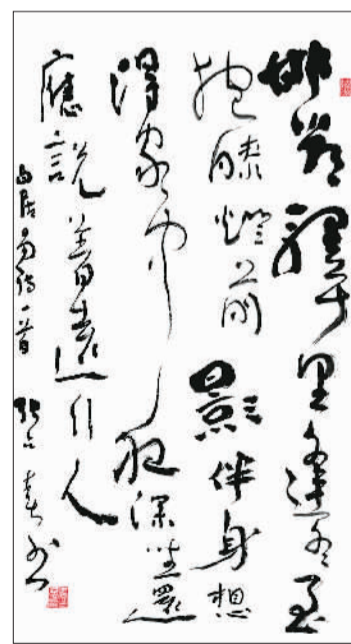 邯鄲驛里逢冬至
抱膝燈前影伴身想
得家中夜深坐還
應說着遠行人
白居易詩一首 春書